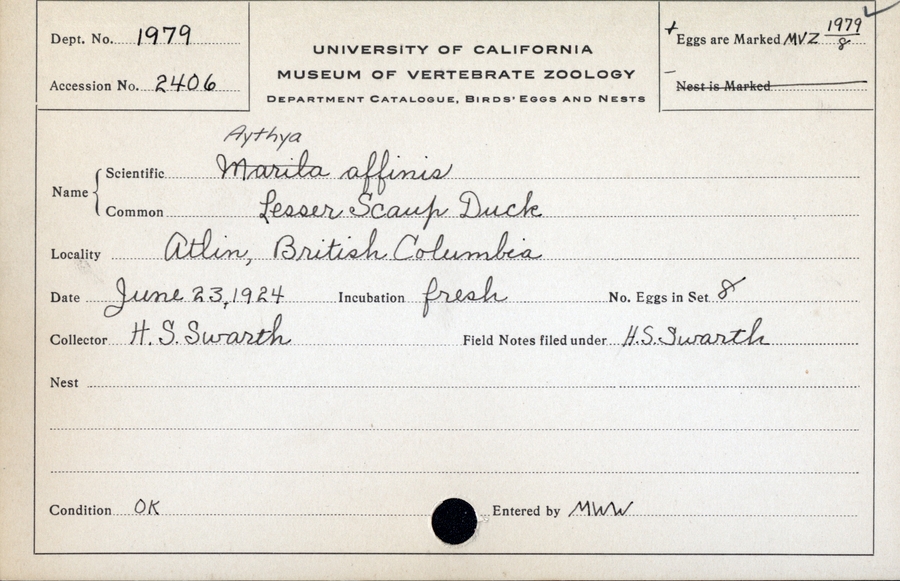 Dept. No. 1979
Accession No. 2406
UNIVERSITY OF CALIFORNIA
MUSEUM OF VERTEBRATE ZOOLOGY
DEPARTMENT CATALOGUE, BIRDS' EGGS AND NESTS
+ Eggs are Marked MVZ 1979/8
Nest is Marked
Aythya
Name { Scientific Marila affinis
Common Lesser Scaup Duck
Locality Atlin, British Columbia
Date June 23, 1924 Incubation fresh No. Eggs in Set 8
Collector H. S. Swarth Field Notes filed under H.S. Swarth
Nest
Condition OK Entered by MWW